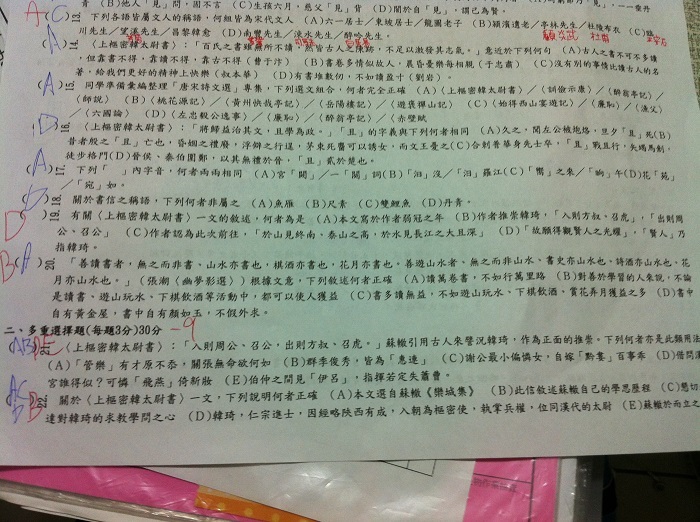 青 (B)他人「見」問,固不言 (C)生孩六月,慈父「見」背 (D)聞於自「見」,謂己為賢。
A (C) 13. 下列各語皆屬文人的稱語,何組皆為宋代文人 (A)六一居士/東坡居士/龍團老子 (B)潁濱遺老/亭林先生/杜陵布衣 (C)
川先生/望溪先生/昌黎韓愈 (D)南豐先生/涑水先生/醉吟先生。
顧炎武 杜甫
(A) 14. 〈上樞密韓太尉書〉:「百氏之書雖無所不讀,然皆古人之陳跡,不足以激發其志氣。」意近於下列何句 (A)古人之書不可不多讀
,但靠書不得,靠讀不得,靠古不得(曹于汴) (B)書卷多情似故人,晨昏憂樂每相親(于忠肅) (C)沒有別的事情比讀古人的名
著,給我們更好的精神上快樂(叔本華) (D)有書堆數仞,不如讀盈寸(劉岩)。
(A) 15. 同學準備彙編整理「唐宋詩文選」專集,下列選文組合,何者完全正確 (A)〈上樞密韓太尉書〉/〈訓儉示康〉/〈醉翁亭記〉/
〈師說〉 (B)〈桃花源記〉/〈黃州快哉亭記〉/〈岳陽樓記〉/〈遊褒禪山記〉 (C)〈始得西山宴遊記〉/〈廉恥〉/〈漁父〉
/〈六國論〉 (D)〈左忠毅公逸事〉/〈廉恥〉/〈醉翁亭記〉/〈赤壁賦
(D) 16. 〈上樞密韓太尉書〉:「將歸益治其文,且學為政。」「且」的字義與下列何者相同 (A)久之,聞左公被炮烙,旦夕「且」死(B)
昔者殷之「且」亡也,昏姻之禮廢,浮僻之行逞,茅束死麕可以誘女,而文王憂之(C)合刺普華身先士卒,「且」戰且行,矢竭馬創,
徒步格鬥(D)晉侯、秦伯圍鄭,以其無禮於晉,「且」貳於楚也。
(A) 17. 下列「 」內字音,何者兩兩相同 (A)宮「闕」/一「闋」詞(B)「汩」沒/「汨」羅江(C)「嚮」之來/「晌」午(D)花「苑」
/「宛」如。
(D) 18. 關於書信之稱語,下列何者非屬之 (A)魚雁 (B)尺素 (C)雙鯉魚 (D)丹青。
D 19. 有關〈上樞密韓太尉書〉一文的敘述,何者為是 (A)本文寫於作者弱冠之年 (B)作者推崇韓琦,「入則方叔、召虎」,「出則周
公、召公」 (C)作者認為此次前往,「於山見終南、泰山之高,於水見長江之大且深」 (D)「故願得觀賢人之光耀」,「賢人」乃
指韓琦。
B (A) 20. 「善讀書者,無之而非書。山水亦書也,棋酒亦書也,花月亦書也。善遊山水者,無之而非山水。書史亦山水也,詩酒亦山水也,花
月亦山水也。」(張潮〈幽夢影選〉)根據文意,下列敘述何者正確 (A)讀萬卷書,不如行萬里路 (B)對善於學習的人來說,不論
是讀書、遊山玩水、下棋飲酒等活動中,都可以使人獲益 (C)書多讀無益,不如遊山玩水、下棋飲酒、賞花弄月獲益之多 (D)書中
自有黃金屋,書中自有顏如玉,不假外求。
二、多重選擇題(每題3分)30分 -9
21. 〈上樞密韓太尉書〉:「入則周公、召公,出則方叔、召虎。」蘇轍引用古人來譬況韓琦,作為正面的推崇。下列何者亦是此類用法
(A)「管樂」有才原不忝,關張無命欲何如 (B)群季俊秀,皆為「惠連」 (C)謝公最小偏憐女,自嫁「黔婁」百事乖 (D)借問漢
宮誰得似?可憐「飛燕」倚新妝 (E)伯仲之間見「伊呂」,指揮若定失蕭曹。
22. 關於〈上樞密韓太尉書〉一文,下列說明何者正確 (A)本文選自蘇轍《欒城集》 (B)此信敘述蘇轍自己的學思歷程 (C)懇切
達對韓琦的求教學問之心 (D)韓琦,仁宗進士,因經略陝西有成,入朝為樞密使,執掌兵權,位同漢代的太尉 (E)蘇轍於而立之